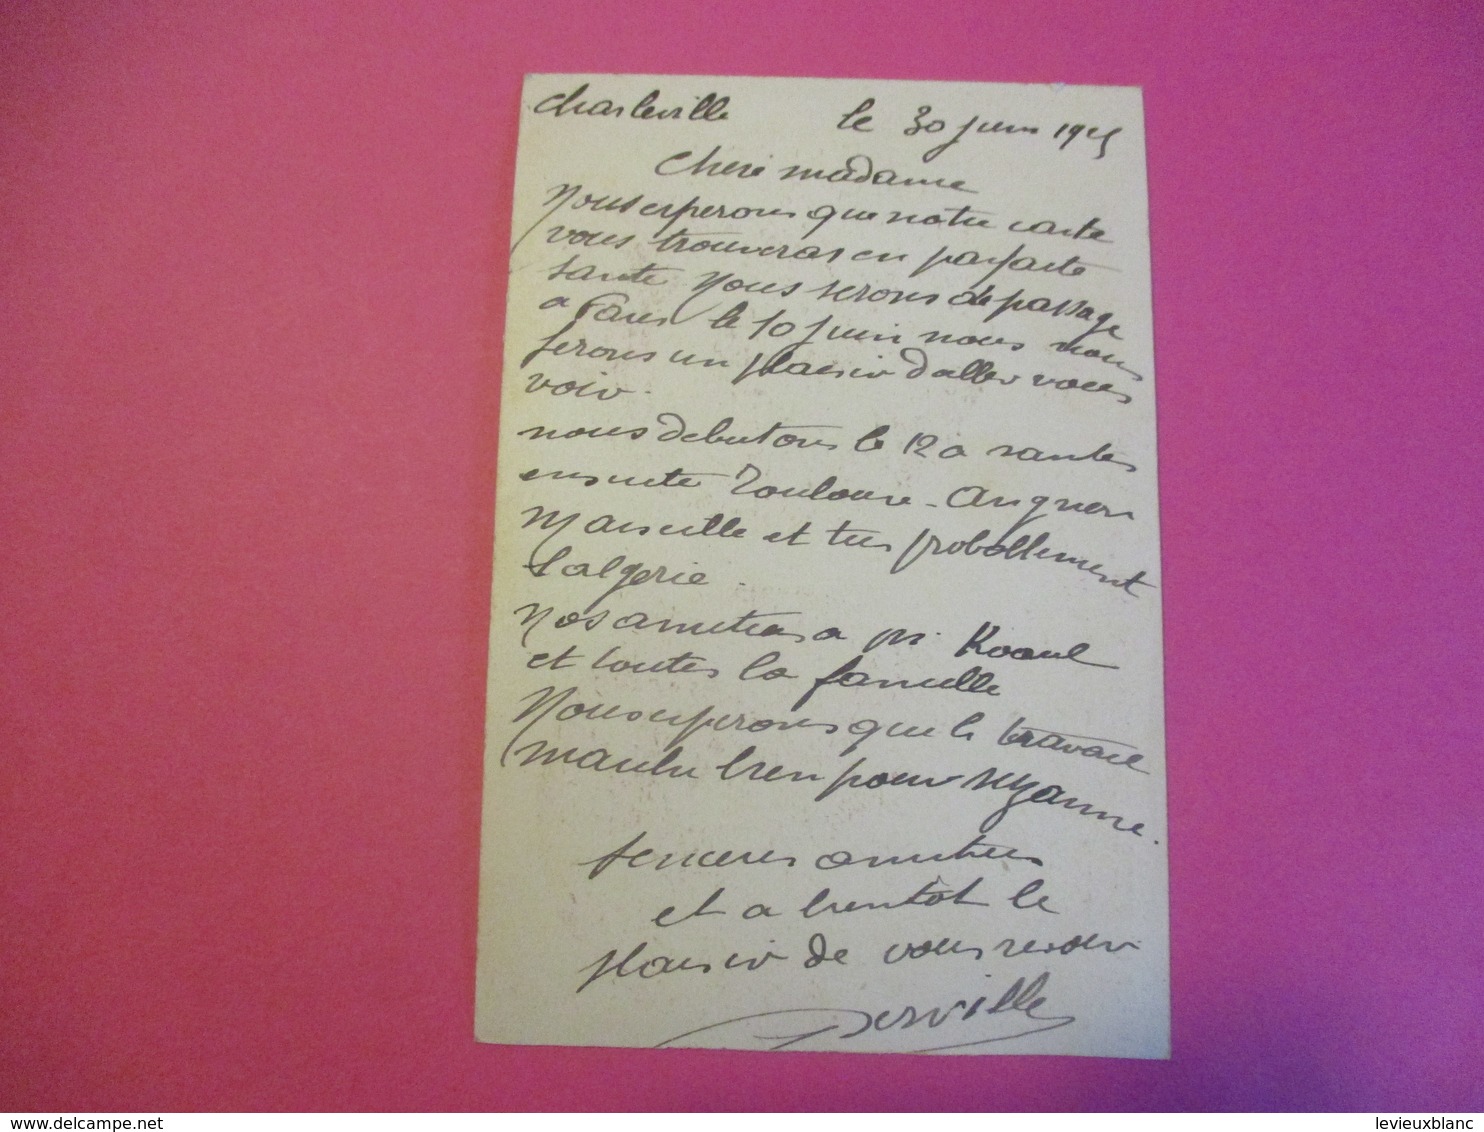 Charleville le 30 juin 1925
Chere madame
Nous esperons que notre carte
vous trouveras en parfaite
sante Nous serons de passage
a Paris le 10 juin nous nous
ferons un plaisir d'aller vous
voir.
nous debutons le 12 a nantes
ensuite Toulouse - Avignon
Marseille et tres probablement
l'algerie.
Nos amities a Mr Raoul
et toutes la famille
Nous esperons que le travail
marche bien pour suzanne.
sinceres amities
et a bientot le
plaisir de vous revoir
Derville
levieuxblanc-delcampe.net
levieuxblanc